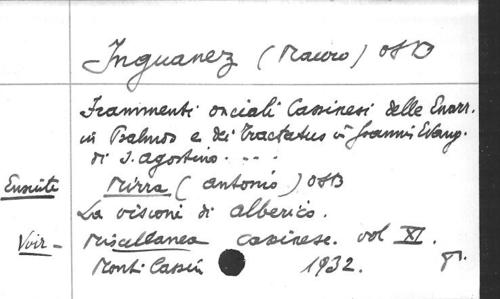 Inguanez (Mauro) OSB
Frammenti onciali Cassinesi delle Enarr.
in Psalmos e dei Tractatus in Joannis Evang.
di S. Agostino. ...
Ensuite Mirra (Antonio) OSB
La visioni di Alberico.
Voir - Miscellanea Cassinese. vol XI.
Monti Cassin 1932.